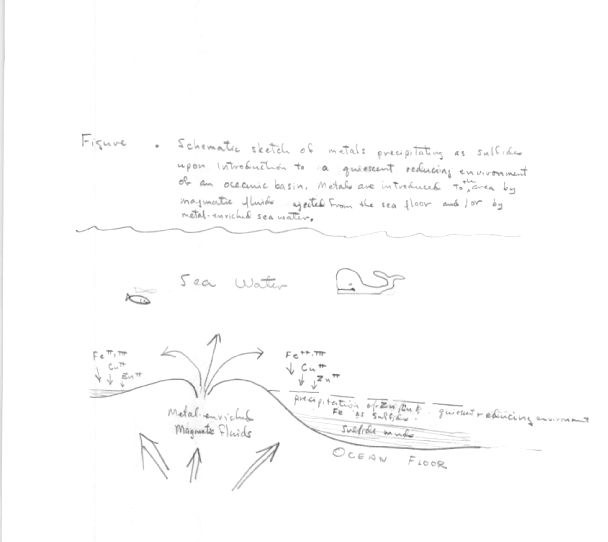 Figure . Schematic sketch of metals precipitating as sulfides
upon introduction to a quiescent reducing environment
of an oceanic basin. Metals are introduced to the area by
magmatic fluids ejected from the sea floor and/or by
metal-enriched sea water.
Sea Water
Fe II, III
Cu II
Zn II
Fe II, III
Cu II
Zn II
Metal-enriched
Magmatic Fluids
precipitation of Zn, Cu & quiescent reducing environment
Fe as sulfides
sulfide muds
OCEAN FLOOR